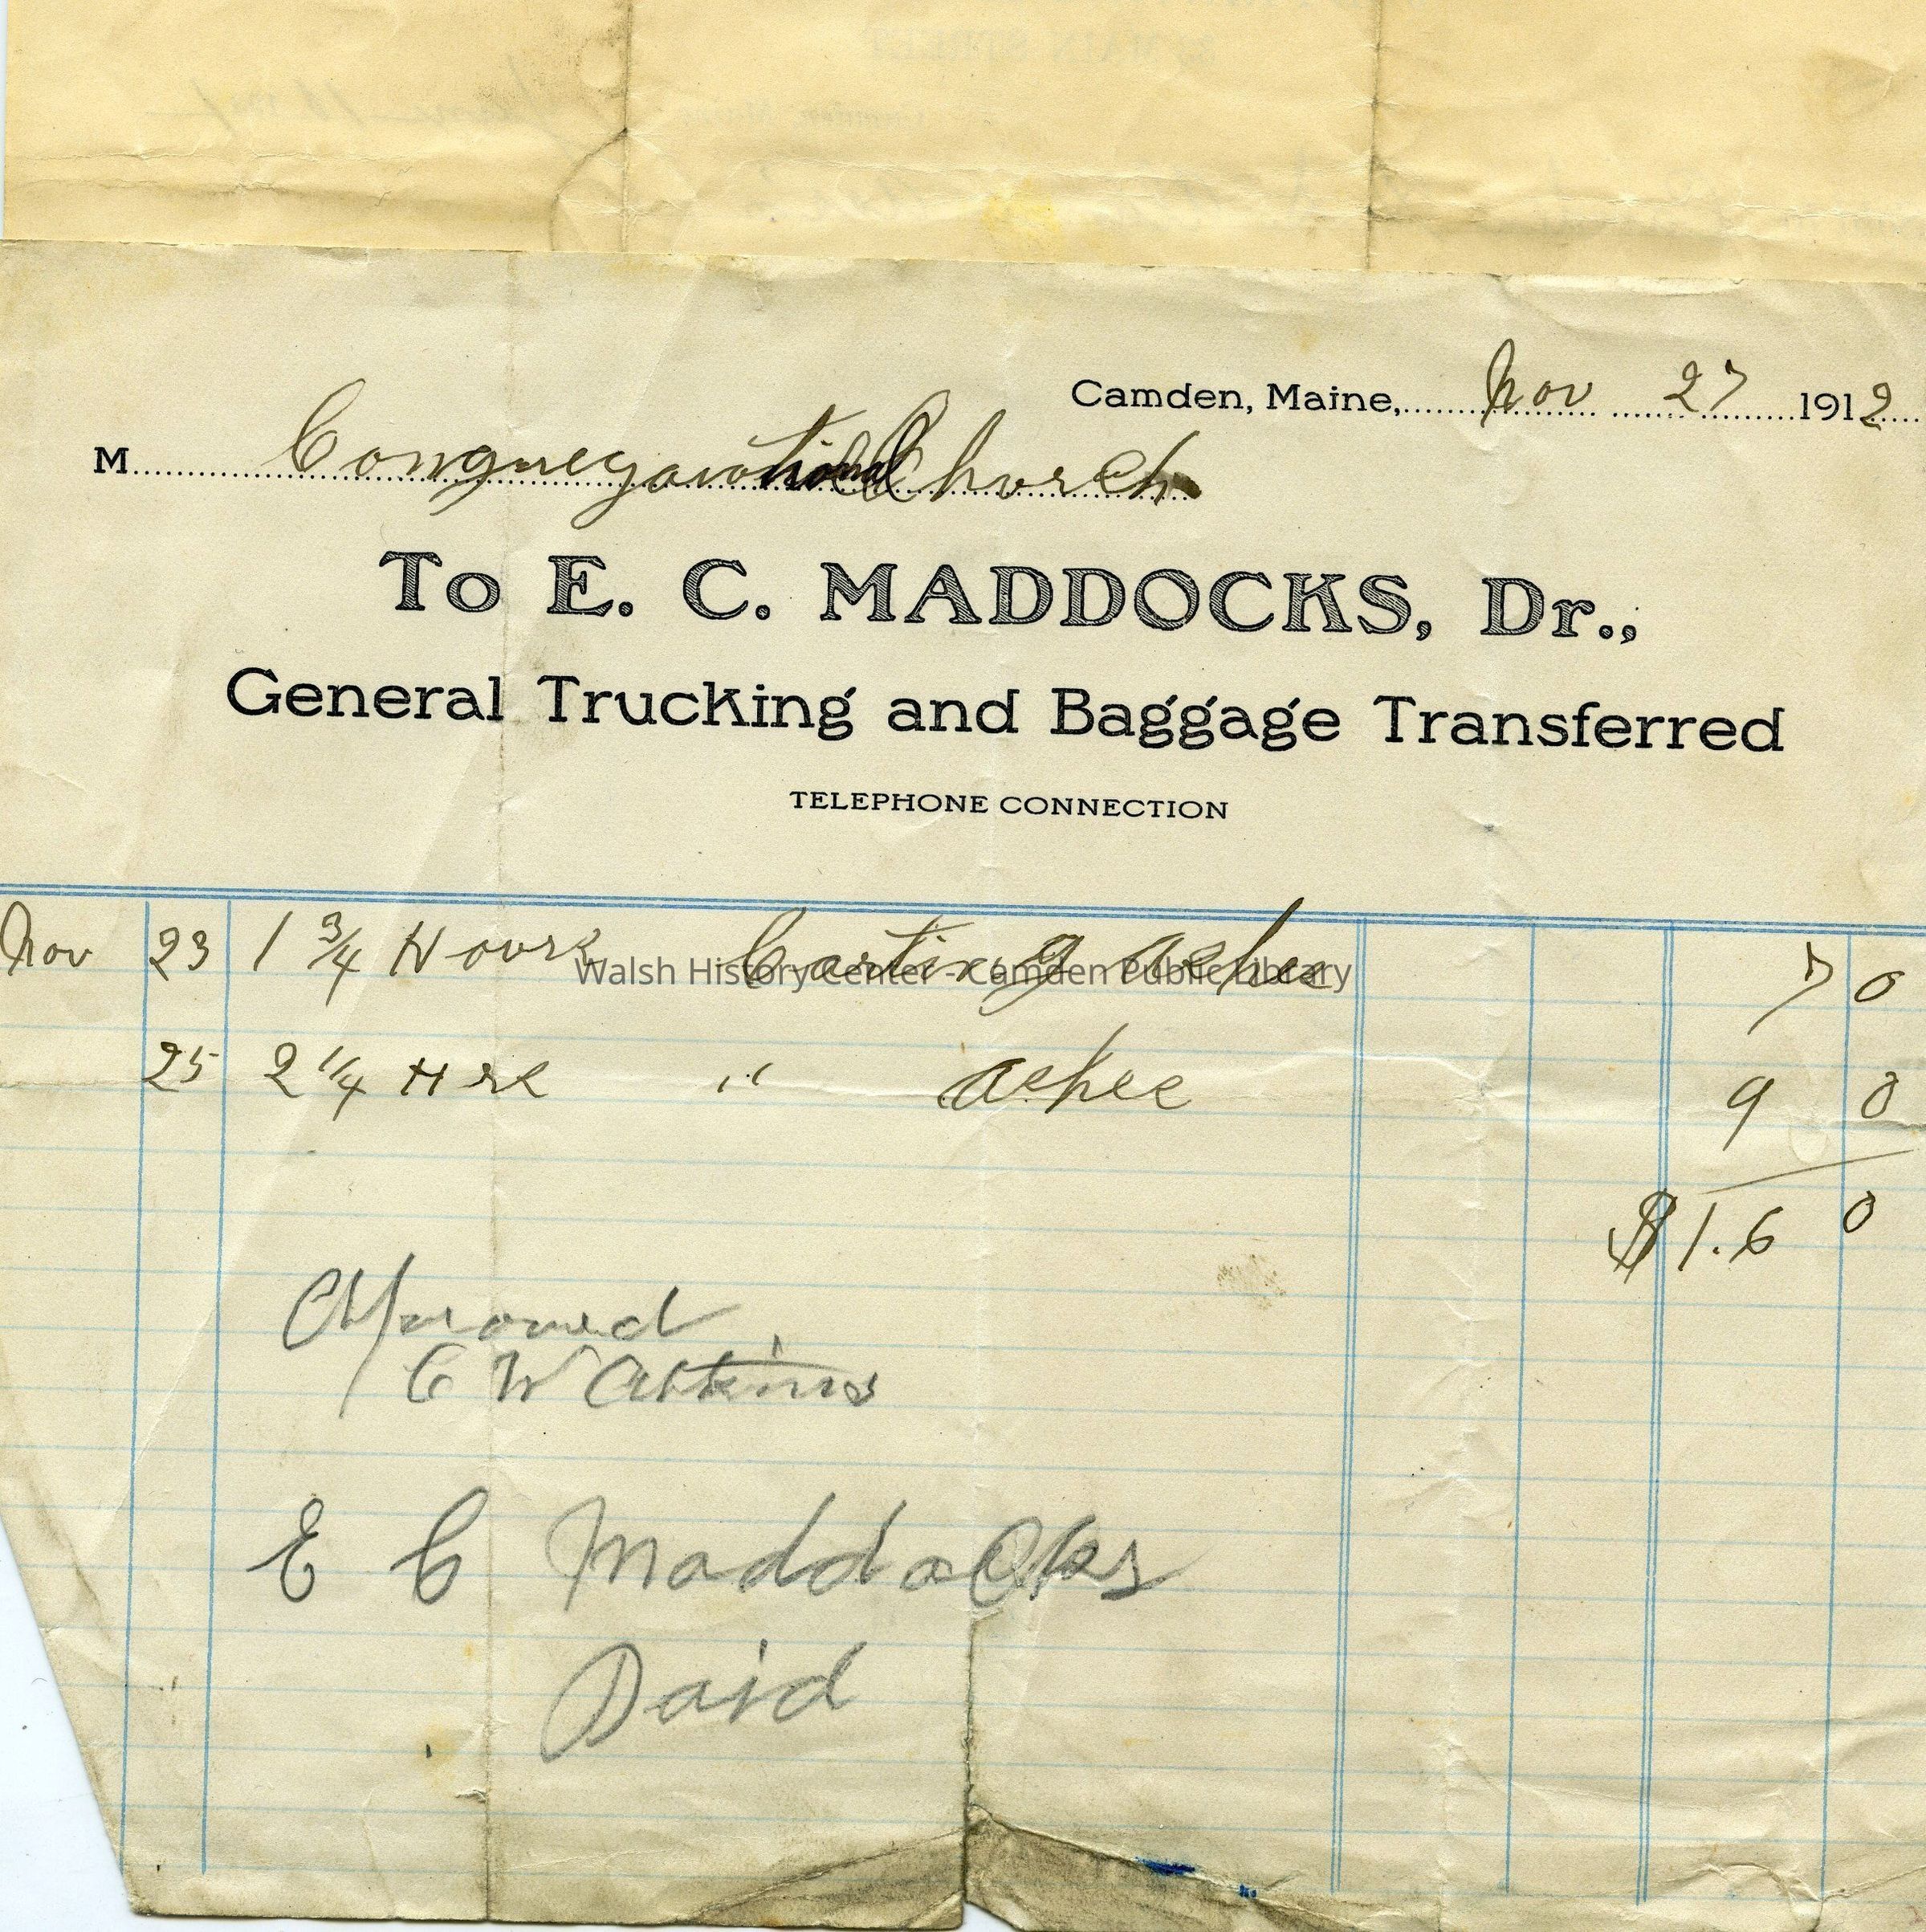 Camden, Maine, Nov 27 1912
M Congregational Church
To E. C. MADDOCKS, Dr.,
General Trucking and Baggage Transferred
TELEPHONE CONNECTION
Nov 23 1 3/4 Hours Carting Ashes 70
Walsh History Center - Camden Public Library
25 2 1/4 Hrs " Ashes 90
$1.60
Approved
C W Atkins
E C Maddocks
Paid